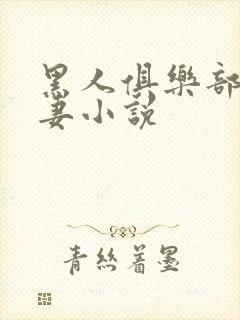 黑人俱樂部
妻小說
青絲著墨